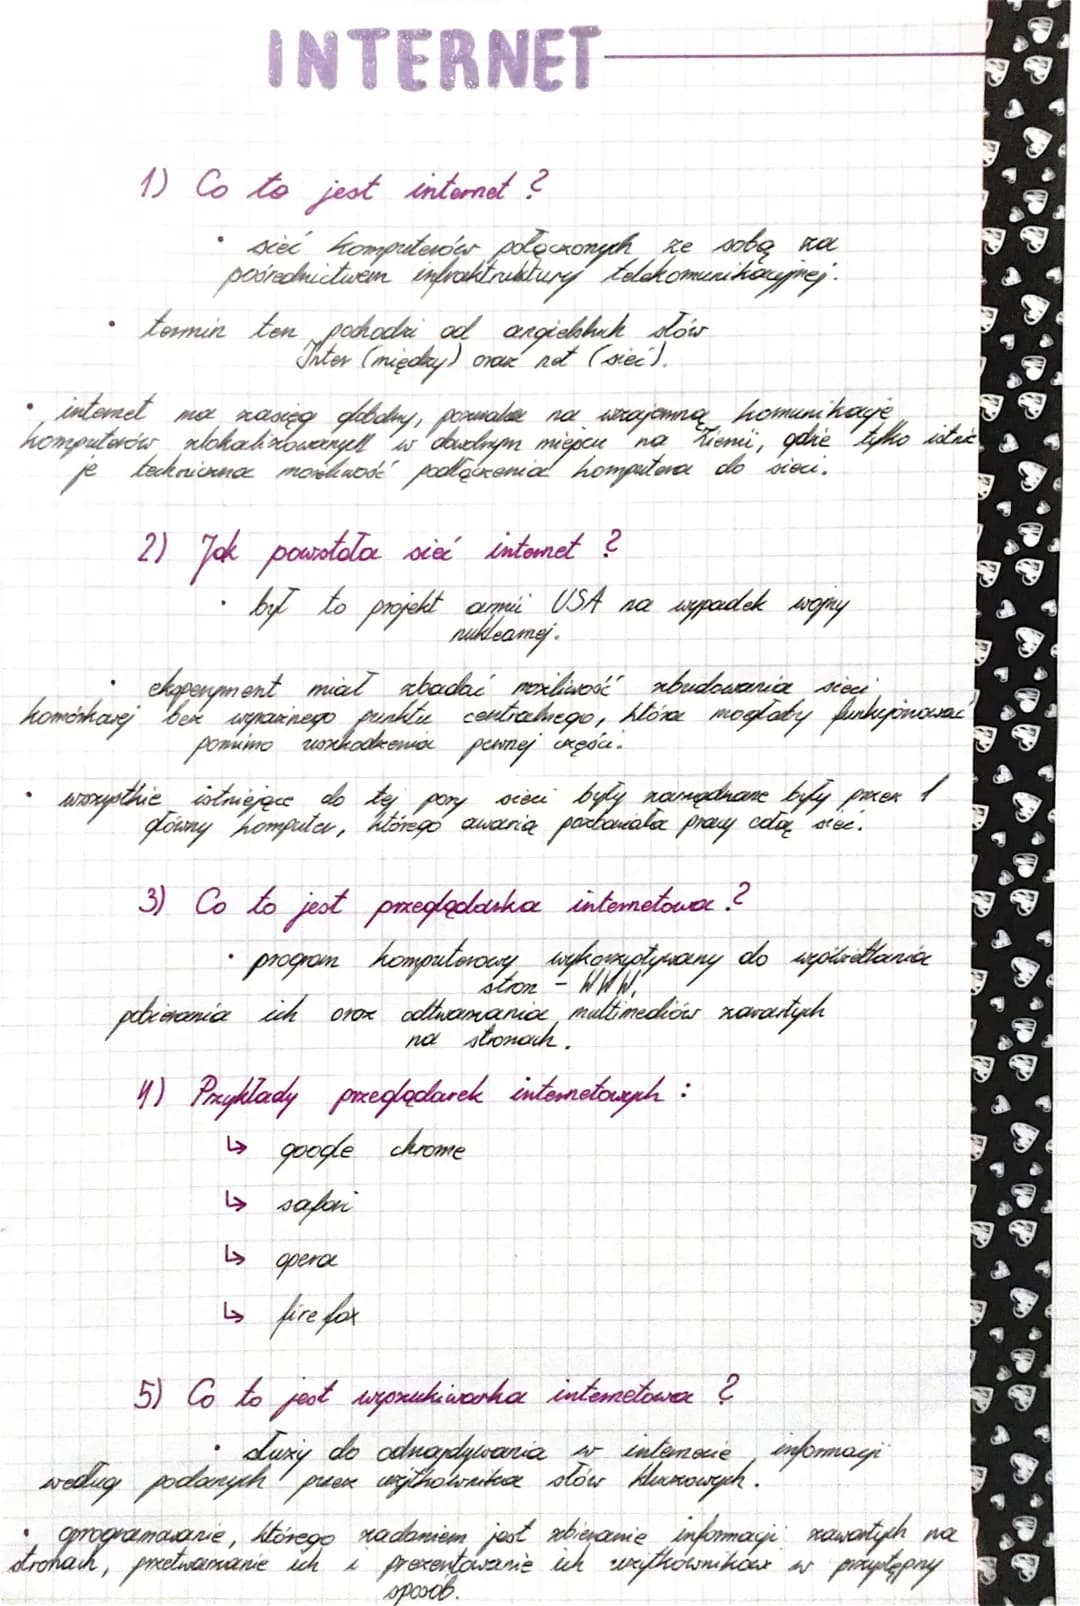 INTERNET
1) Co to jest internet?
• sieć komputerów połączonych ze sobą za
pośrednictwem infrastruktury telekomunikacyjnej.
• termin ten pochodzi od angielskich słów
Inter (między) oraz net (sieć).
• internet ma zasięg globalny, pozwala na wzajemną komunikację
komputerów zlokalizowanych w dowolnym miejscu na Ziemii, gdzie tylko istnie
je techniczna możliwość podłączenia komputera do sieci.
2) Jak powstała sieć internet?
• był to projekt armii USA na wypadek wojny
nuklearnej.
• eksperyment miał zbadać możliwość zbudowania sieci
komórkowej bez wyraźnego punktu centralnego, która mogłaby funkcjonować
pomimo uszkodzenia pewnej części.
• wszystkie istniejące do tej pory sieci były zarządzane były przez 1
główny komputer, którego awaria pozbawiała pracy całą sieć.
3) Co to jest przeglądarka internetowa?
• program komputerowy wykorzystywany do wyświetlania
stron - WWW,
pobierania ich oraz odtwarzania multimediów zawartych
na stronach.
4) Przykłady przeglądarek internetowych:
↳ google chrome
↳ safari
↳ opera
↳ firefox
5) Co to jest wyszukiwarka internetowa?
• służy do odnajdywania w internecie informacji
według podanych przez użytkownika słów kluczowych.
• oprogramowanie, którego zadaniem jest zbieranie informacji zawartych na
stronach, przetwarzanie ich i prezentowanie ich użytkownikowi w przystępny
sposób.